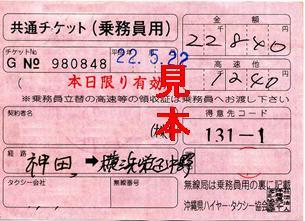 共通チケット(乗務員用)
金額
22840
チケットNo
G No 980848
22.5.22
高速他
1240
本日限り有効
※乗務員立替の高速等の領収証は乗務員へお渡し下さい
見本
契約者
(株)
得意先コード
131-1
経路
神田 → 横浜
タクシー会社
無線番号
無線局は乗務員用の裏に記載
沖縄県ハイヤー・タクシー協会